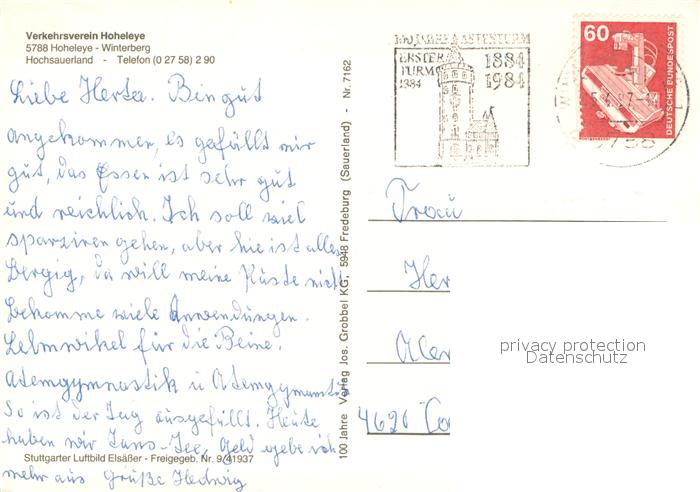 Verkehrsverein Hoheleye
5788 Hoheleye - Winterberg
Hochsauerland - Telefon (0 27 58) 2 90
Liebe Herta. Bin gut
angekommen, es gefällt mir
gut, das Essen ist sehr gut
und reichlich. Ich soll viel
spaziren gehen, aber hie ist alles
bergig, da will meine Püste nicht
bekomme viele Anwendungen.
Lelmwikel für die Beine.
Atemgymnastik u Atemgymnastik
So ist der Tag ausgefüllt. Heute
haben wir Tans-Tee, Geld gebe ich
mehr aus Grüße Hedwig
Stuttgarter Luftbild Elsäßer - Freigegeb. Nr. 9/41937
100 Jahre Verlag Jos. Grobbel KG, 5948 Fredeburg (Sauerland) - Nr. 7162
100 JAHRE ASTENTURM
ERSTER
TURM
1884
1884
1984
60
DEUTSCHE BUNDESPOST
5788
Frau
Her
4620 Ca
privacy protection
Datenschutz